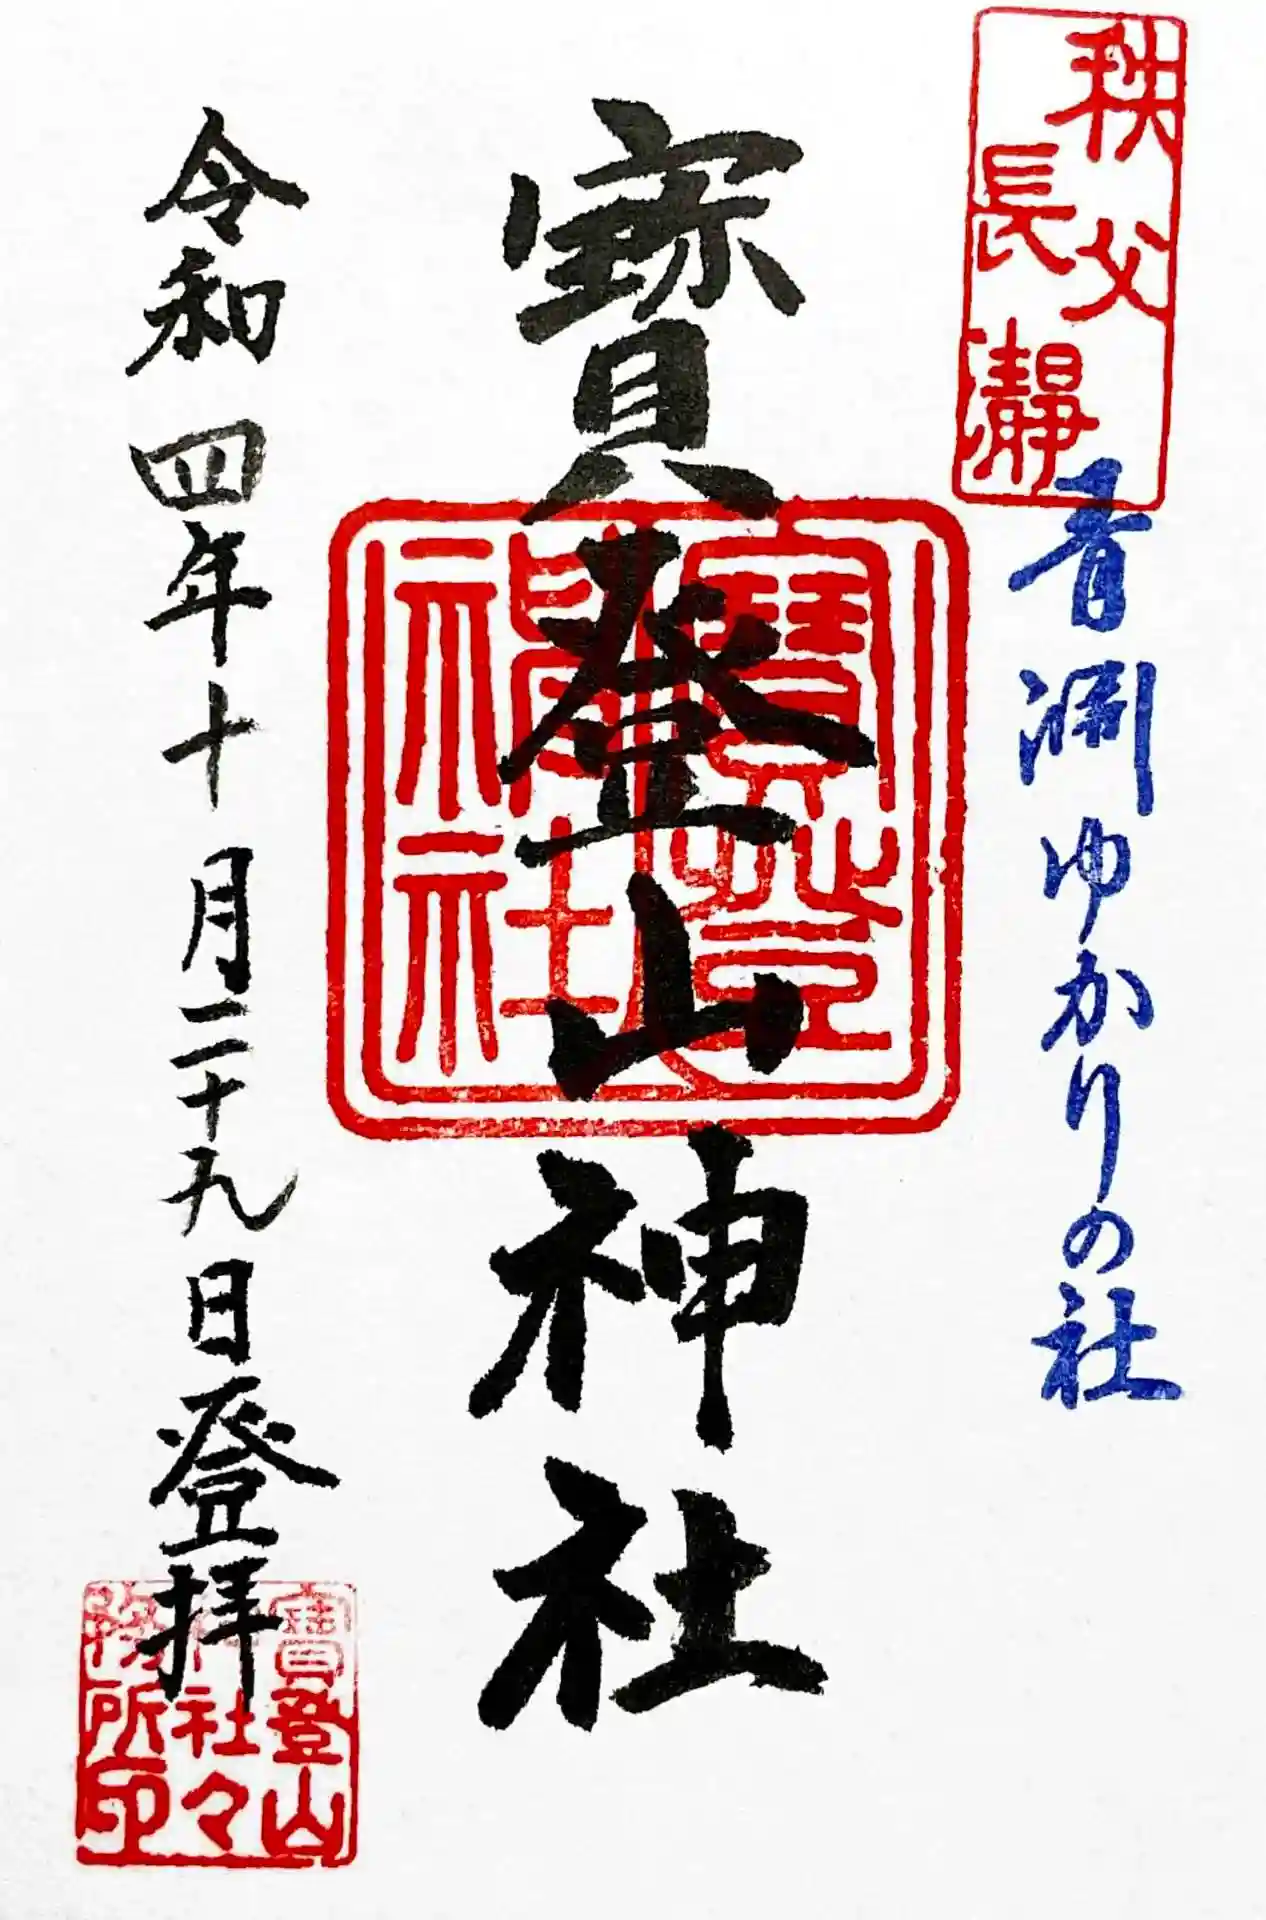 秩父
長瀞
青淵ゆかりの社
寳登山神社
寳登山
神社
令和四年十月二十九日登拝
寳登山
神社々
務所印